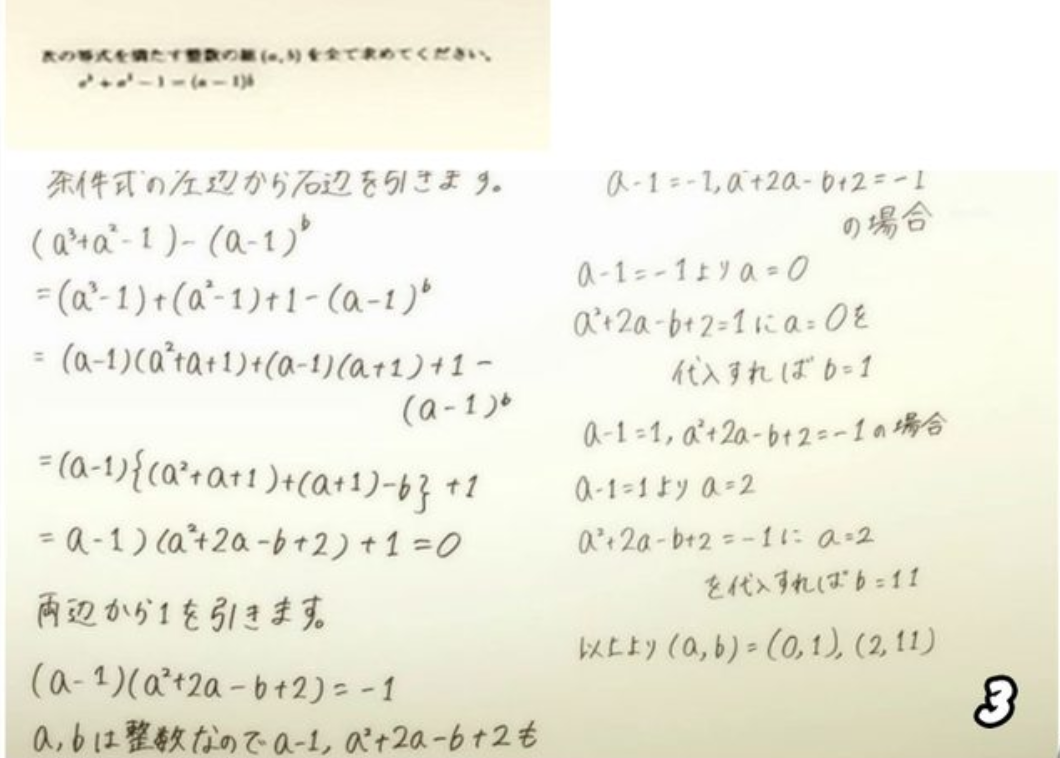 次の等式を満たす整数の組 (a, b) を全て求めてください。
a³ + a² − 1 = (a − 1)b
条件式の左辺から右辺を引きます。
(a³+a²-1)-(a-1)ᵇ
=(a³-1)+(a²-1)+1-(a-1)ᵇ
= (a-1)(a²+a+1)+(a-1)(a+1)+1-
(a-1)ᵇ
=(a-1){(a²+a+1)+(a+1)-b} +1
= a-1)(a²+2a-b+2)+1=0
両辺から1を引きます。
(a-1)(a²+2a-b+2)=-1
a,bは整数なのでa-1, a²+2a-b+2も
a-1=-1, a²+2a-b+2=-1
の場合
a-1=-1よりa=0
a²+2a-b+2=1にa=0を
代入すればb=1
a-1=1, a²+2a-b+2=-1の場合
a-1=1よりa=2
a²+2a-b+2=-1に a=2
を代入すればb=11
以上より(a,b)=(0,1), (2,11)
3